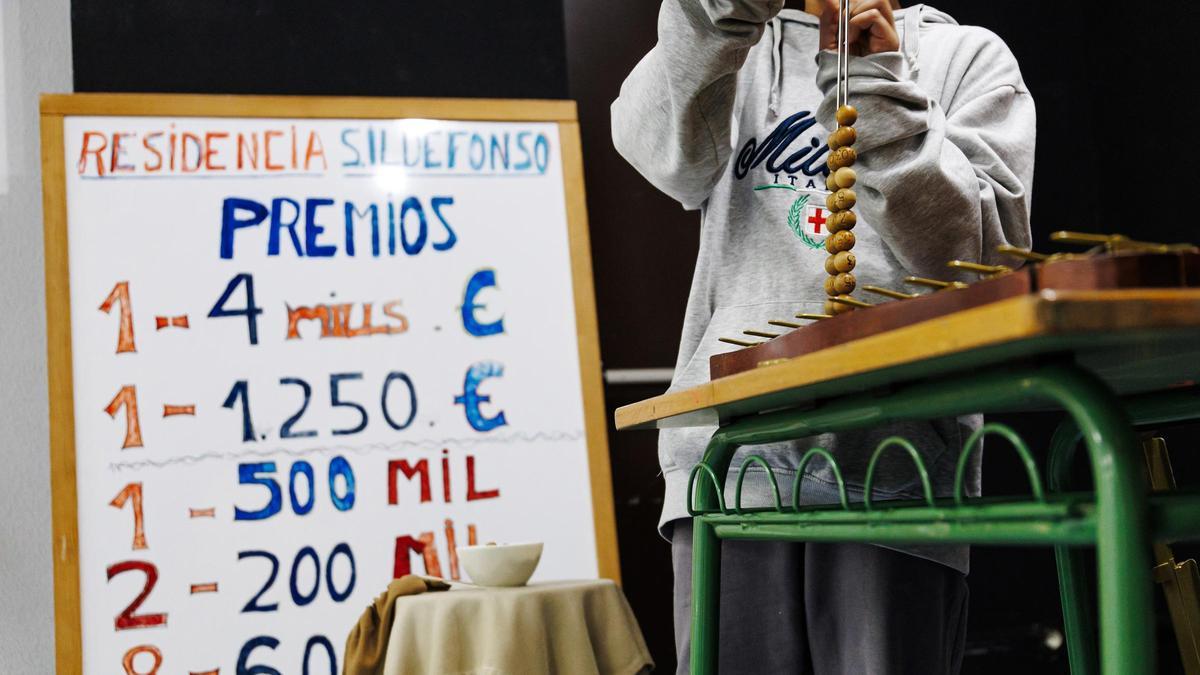 RESiDENCiA S.ILDEFONSO
PREMiOS
1 - 4 MiLLS . €
1 - 1.250. €
1 - 500 MiL
2 - 200 MiL
8 - 60
Mil
ITA